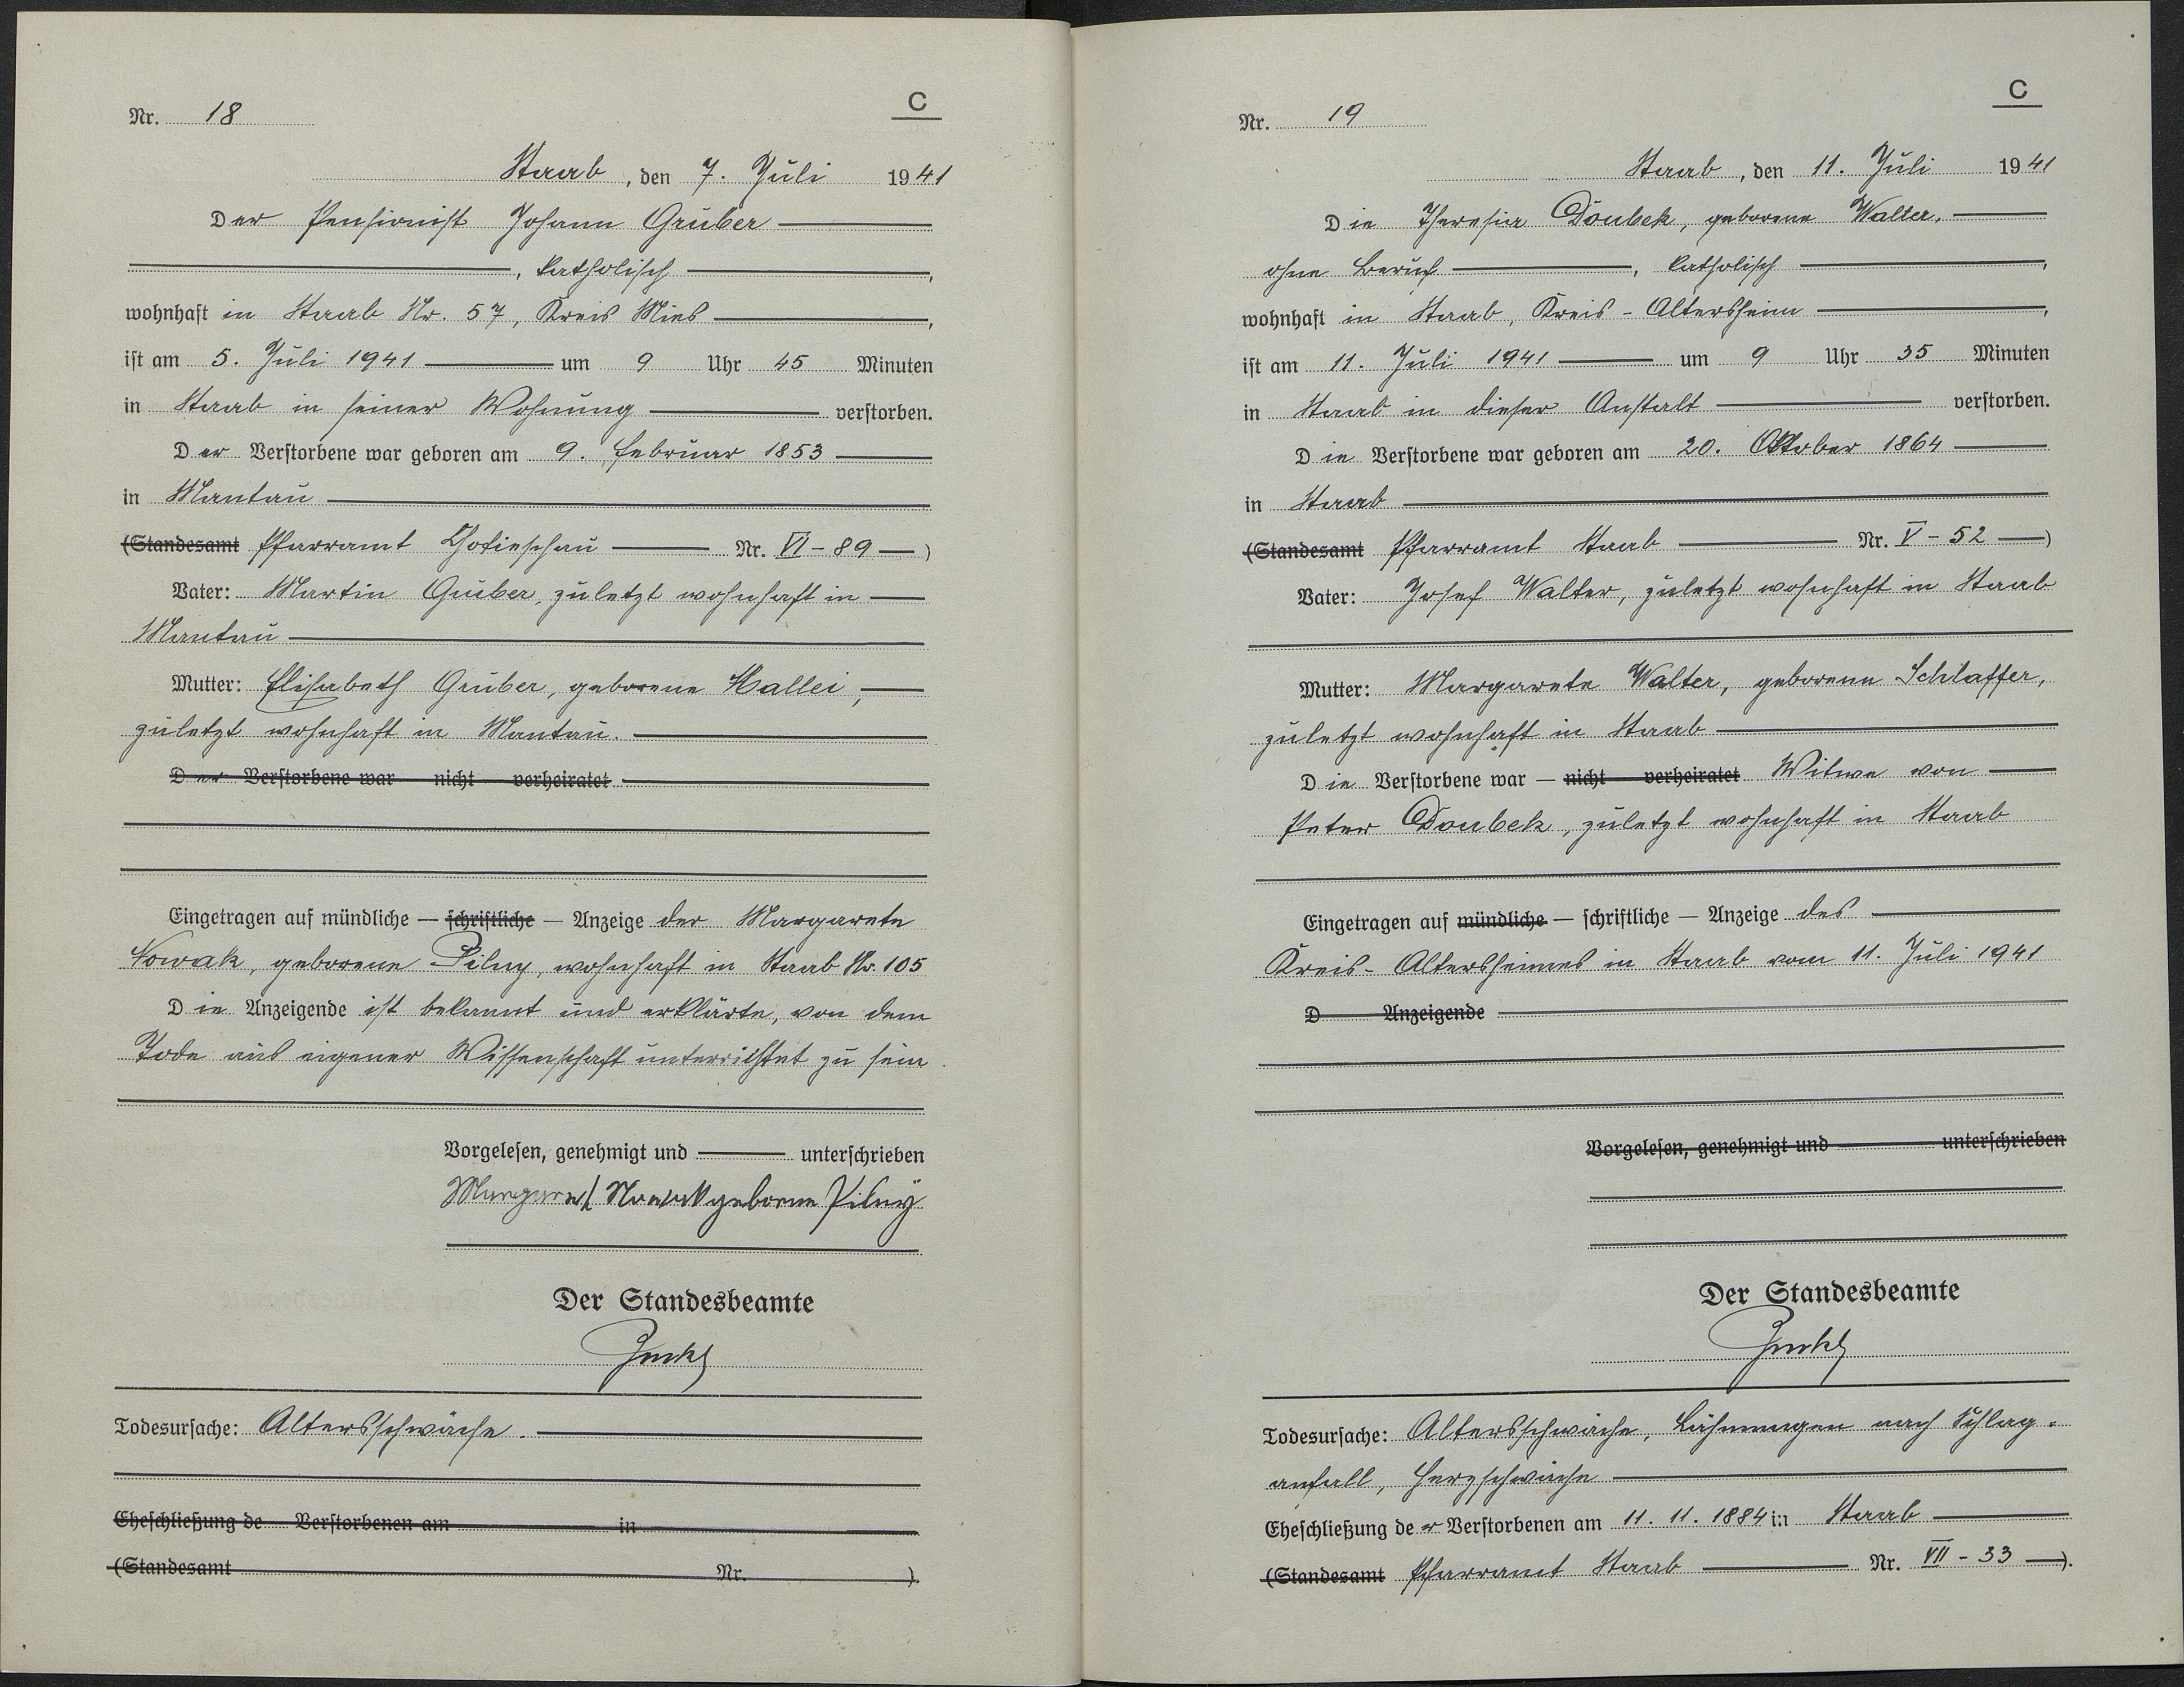 C
Nr. 18
Staab, den 7. Juli 1941
Der Pensionist Johann Gruber
, katholisch ,
wohnhaft in Staab Nr. 57, Kreis Mies ,
ist am 5. Juli 1941 um 9 Uhr 45 Minuten
in Staab in seiner Wohnung verstorben.
Der Verstorbene war geboren am 9. Februar 1853
in Mantau
(Standesamt Pfarramt Chotieschau Nr. VI - 89 )
Vater: Martin Gruber, zuletzt wohnhaft in
Mantau
Mutter: Elisabeth Gruber, geborene Hallei,
zuletzt wohnhaft in Mantau.
Der Verstorbene war nicht verheiratet
Eingetragen auf mündliche — schriftliche — Anzeige der Margarete
Nowak, geborene Pilny, wohnhaft in Staab Nr. 105
Die Anzeigende ist bekannt und erklärte, von dem
Tode aus eigener Wissenschaft unterrichtet zu sein
Vorgelesen, genehmigt und unterschrieben
Nowak geborene Pilny
Der Standesbeamte
Todesursache: Altersschwäche.
Eheschließung de Verstorbenen am in
(Standesamt Nr. ).
C
Nr. 19
Staab, den 11. Juli 1941
Die Theresia Doubek, geborene Walter,
ohne Beruf , katholisch ,
wohnhaft in Staab, Kreis-Altersheim ,
ist am 11. Juli 1941 um 9 Uhr 35 Minuten
in Staab in dieser Anstalt verstorben.
Die Verstorbene war geboren am 20. Oktober 1864
in Staab
(Standesamt Pfarramt Staab Nr. V - 52 )
Vater: Josef Walter, zuletzt wohnhaft in Staab
Mutter: Margarete Walter, geborene Schlaffer,
zuletzt wohnhaft in Staab
Die Verstorbene war — nicht verheiratet Witwe von
Peter Doubek, zuletzt wohnhaft in Staab
Eingetragen auf mündliche — schriftliche — Anzeige des
Kreis-Altersheimes in Staab vom 11. Juli 1941
D Anzeigende
Vorgelesen, genehmigt und unterschrieben
Der Standesbeamte
Todesursache: Altersschwäche, Lähmungen nach Schlag-
anfall, Herzschwäche
Eheschließung der Verstorbenen am 11. 11. 1884 in Staab
(Standesamt Pfarramt Staab Nr. VII - 33 ).